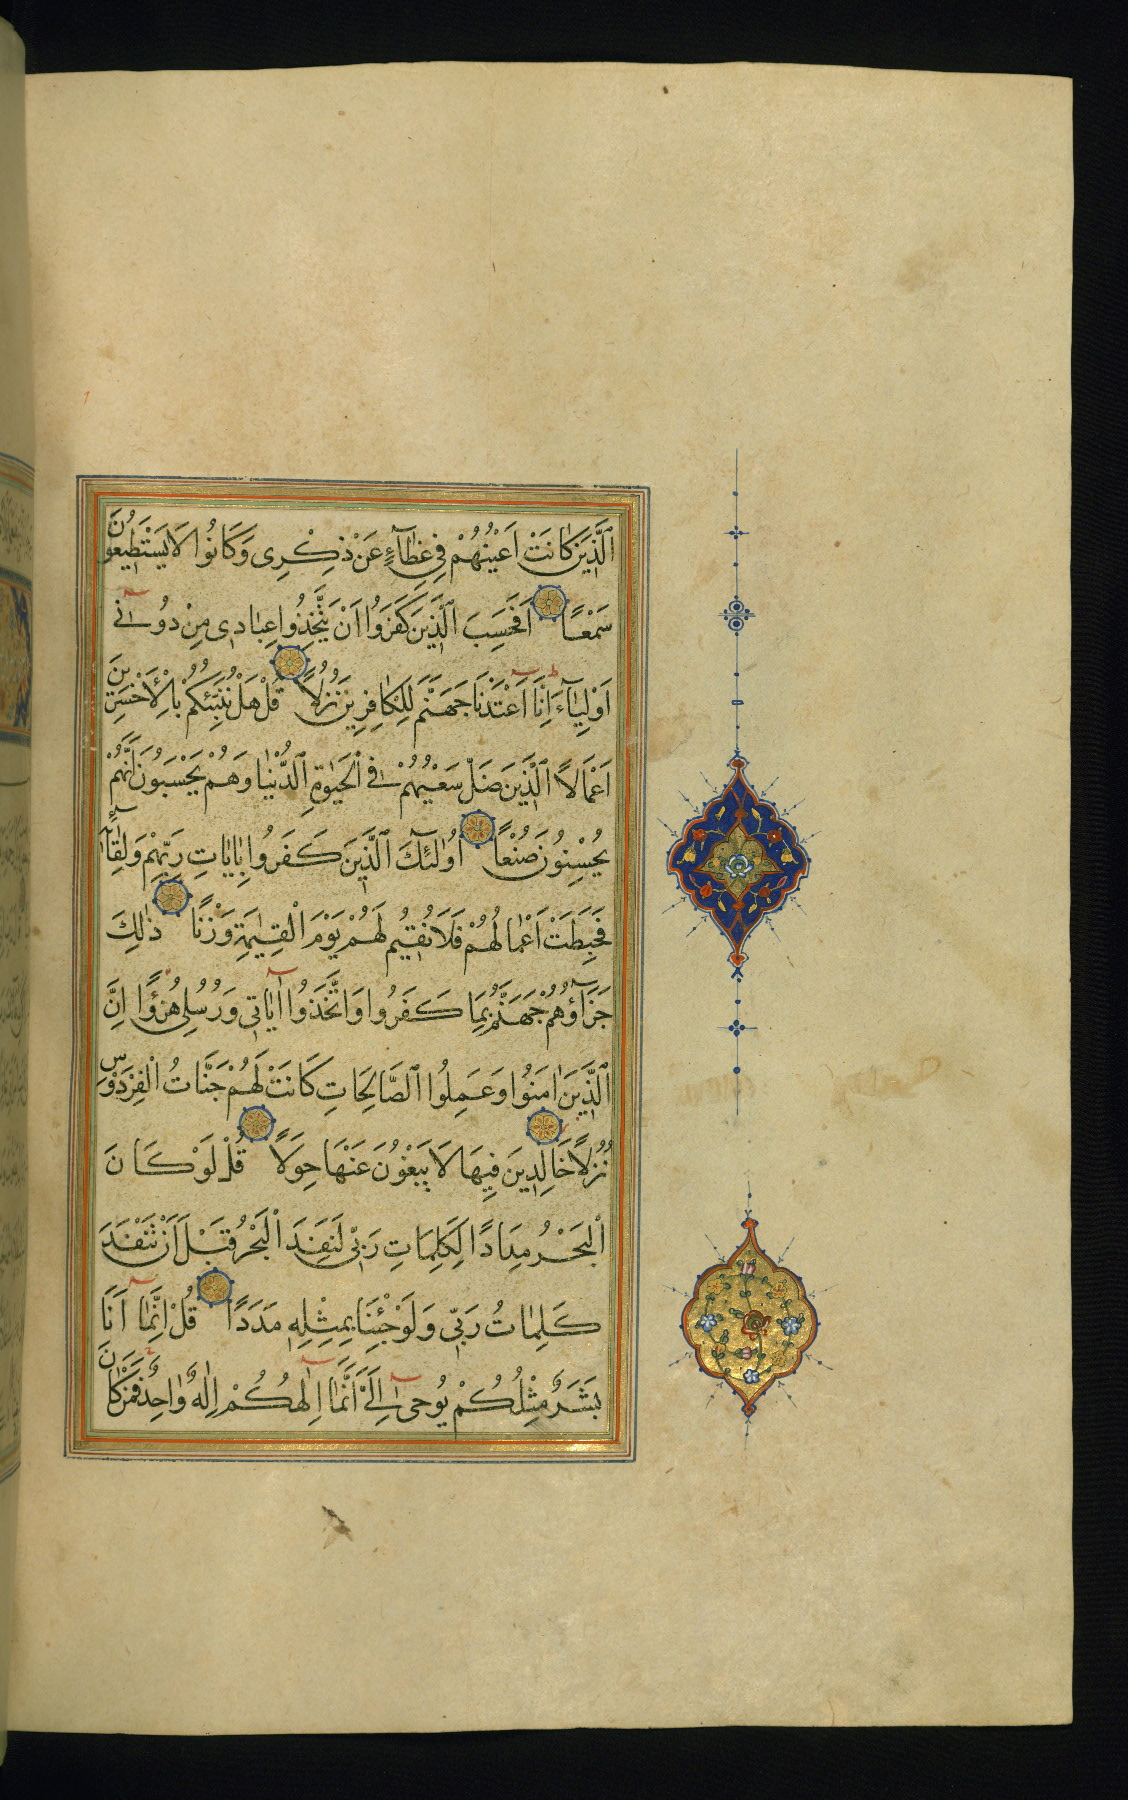 اَلَّذِينَ كَانَتْ اَعْيُنُهُمْ فِي غِطَآءٍ عَنْ ذِكْرِي وَكَانُوا لَا يَسْتَطِيعُونَ
سَمْعًا اَفَحَسِبَ الَّذِينَ كَفَرُوا اَنْ يَتَّخِذُوا عِبَادِي مِنْ دُونِي
اَوْلِيَآءَ اِنَّا اَعْتَدْنَا جَهَنَّمَ لِلْكَافِرِينَ نُزُلًا قُلْ هَلْ نُنَبِّئُكُمْ بِالْاَخْسَرِينَ
اَعْمَالًا اَلَّذِينَ ضَلَّ سَعْيُهُمْ فِي الْحَيٰوةِ الدُّنْيَا وَهُمْ يَحْسَبُونَ اَنَّهُمْ
يُحْسِنُونَ صُنْعًا اُولٰئِكَ الَّذِينَ كَفَرُوا بِاٰيَاتِ رَبِّهِمْ وَلِقَآئِهِ
فَحَبِطَتْ اَعْمَالُهُمْ فَلَا نُقِيمُ لَهُمْ يَوْمَ الْقِيٰمَةِ وَزْنًا ذٰلِكَ
جَزَآؤُهُمْ جَهَنَّمُ بِمَا كَفَرُوا وَاتَّخَذُوا اٰيَاتِي وَرُسُلِي هُزُؤًا اِنَّ
الَّذِينَ اٰمَنُوا وَعَمِلُوا الصَّالِحَاتِ كَانَتْ لَهُمْ جَنَّاتُ الْفِرْدَوْسِ
نُزُلًا خَالِدِينَ فِيهَا لَا يَبْغُونَ عَنْهَا حِوَلًا قُلْ لَوْ كَانَ
الْبَحْرُ مِدَادًا لِكَلِمَاتِ رَبِّي لَنَفِدَ الْبَحْرُ قَبْلَ اَنْ تَنْفَدَ
كَلِمَاتُ رَبِّي وَلَوْ جِئْنَا بِمِثْلِهِ مَدَدًا قُلْ اِنَّمَا اَنَا
بَشَرٌ مِثْلُكُمْ يُوحٰى اِلَيَّ اَنَّمَا اِلٰهُكُمْ اِلٰهٌ وَاحِدٌ فَمَنْ كَانَ